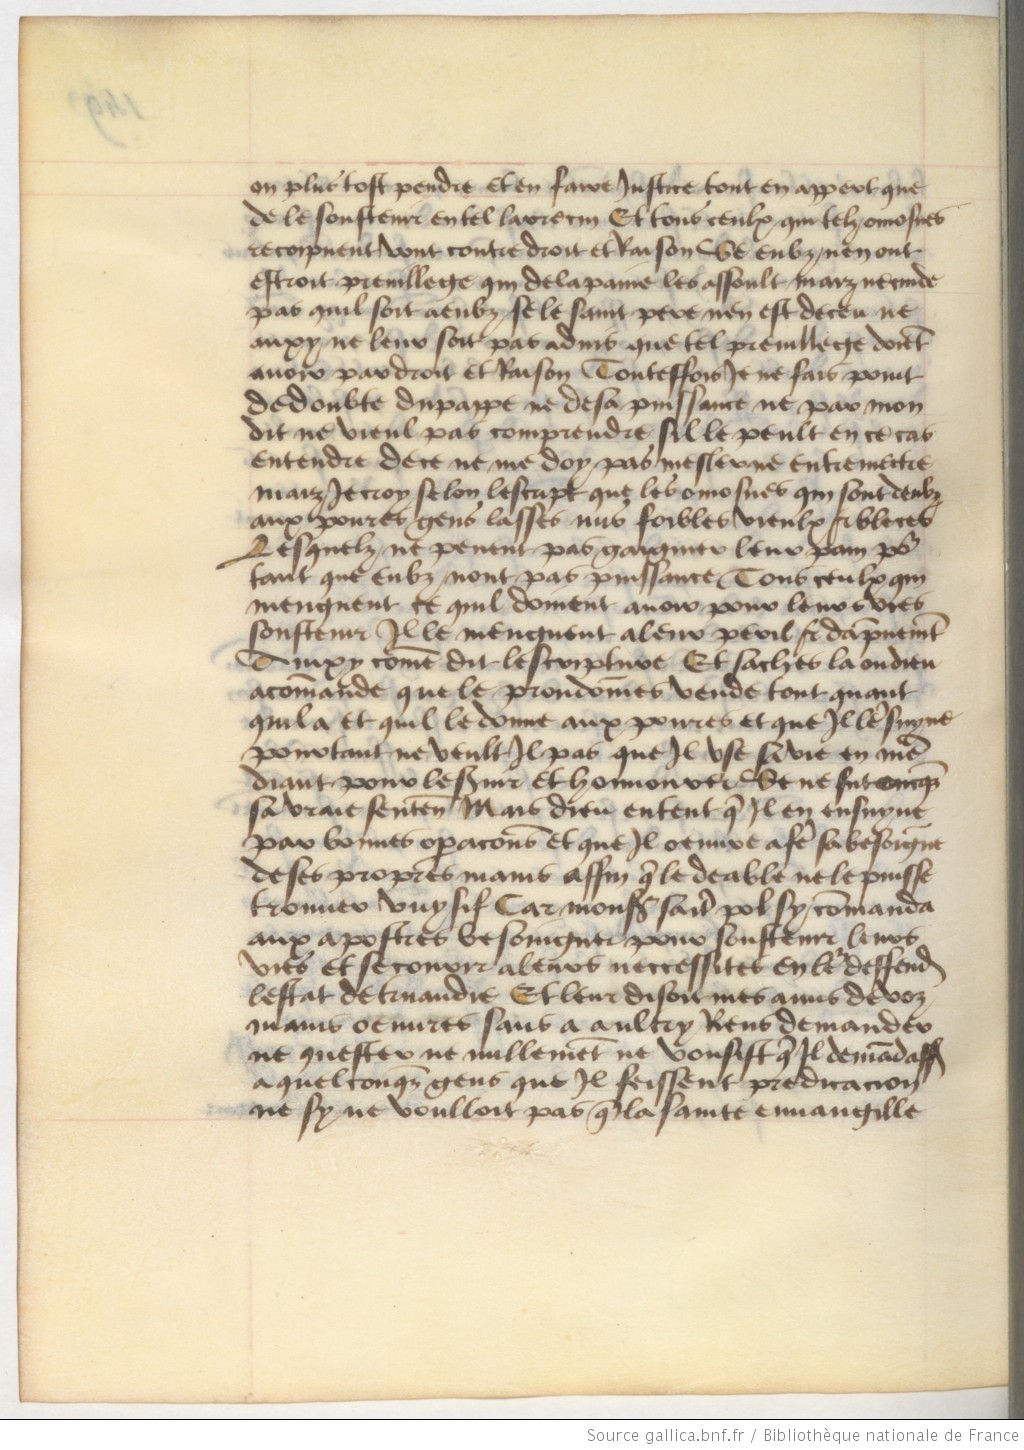 on plus tost pendre et en faire Justice tout en appert que
de le soustenir en tel larrecin Et tous ceulx qui telz omosnes
recoipuent vont contre droit et Raison Se eubz nen ont
estroit preuillege qui de la paine les assoult marz ne cuide
pas quil soit a eubz se le saint pere nen est deceu ne
auxy ne leur soit pas aduis que tel preuillege doiēt
auoir par droit et Raison Touteffois Je ne fais point
de doubte du pappe ne de sa puissance ne par mon
dit ne vieul pas comprendre sil le peult en ce cas
entendre de ce ne me doy pas mesler ne entremectre
marz Je croy selon lescript que les omosnes qui sont deubz
aux poures gens lasses nus foibles vieulx & bleces
Lesquelz ne peuent pas gaigner leur pain po͛
tant que eubz nont pas puissance Tous ceulx qui
menguent ce quil doiuent auoir pour leurs vies
soustenir Il le menguent a leur peril & dāpnemēt
Auxy comē dit lescripture Et saches la ou dieu
a comāde que le preudomēs vende tout quant
quil a et quil le donne aux poures et que Il le suyue
pourtant ne veult Il pas que Il vse sa vie en mē
diant pour le seruir et honnourer Se ne fut oncq̄s
sa vraie senten̄ Mais dieu entent q̄ Il en ensuyue
par bonnes opacōns et que Il oeuure a fe͛ sa besoigne
de ses propres mains affin q̄ le deable ne le puisse
trouuer vuysif Car monss͛ sait̄ pol sy cōmanda
aux apostres besoingner pour soustenir leurs
vies et secourir a leurs neccessites en le͛ deffend̄
lestat de truandie Et leur disoit mes amis de voz
mains oeuures sans a aultry Riens demander
ne quester ne nullemēt ne vousist q̄ Il demādass̄
a quelconq̄ gens que Il feissent predicacion
ne sy ne voulloit pas q̄ la sainte euuangille
Source gallica.bnf.fr / Bibliothèque nationale de France